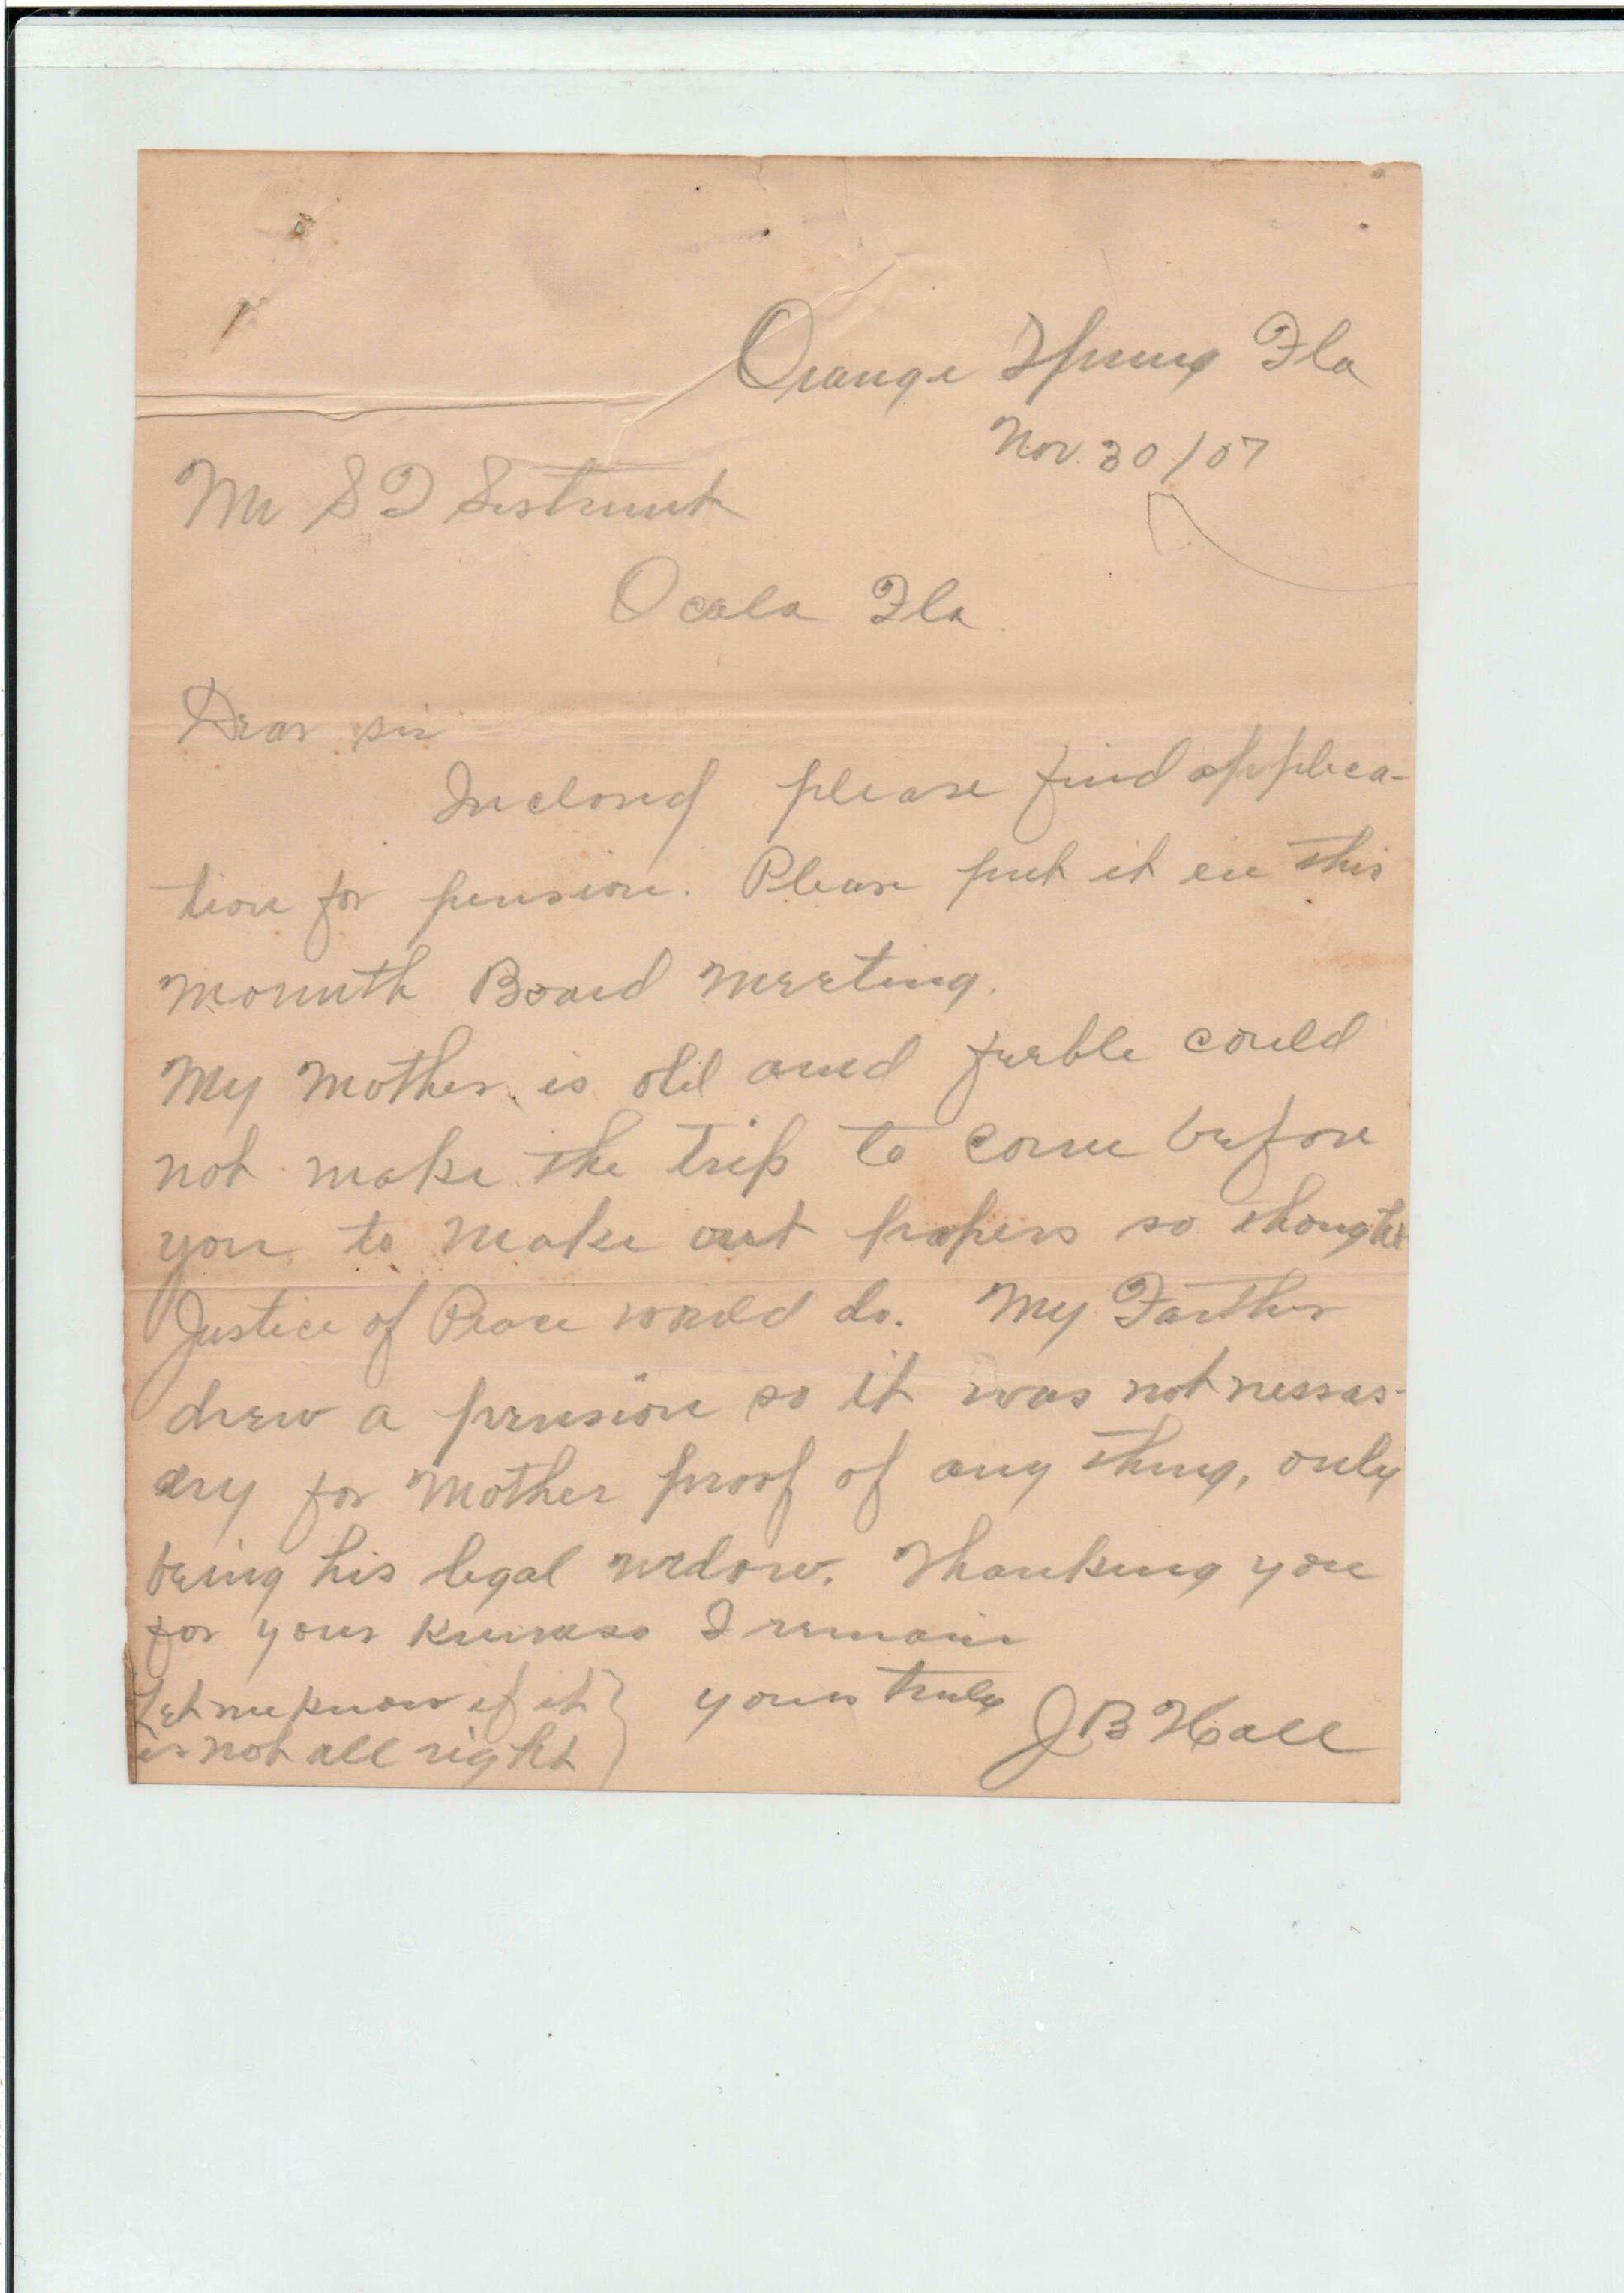 Orange Spring Fla
Nov. 30/07
Mr S T Sistrunk
Ocala Fla
Dear sir
Inclosed please find applica-
tion for pension. Please put it in this
monnth Board meeting.
My Mother is old and feeble could
not make the trip to come before
you to make out papers so thought
Justice of Peace would do. My Farther
drew a pension so it was not nessas-
ary for Mother proof of any thing, only
being his legal widow. Thanking you
for your kindness I remain
yours truly
J B Hall
Let me know if it
is not all right